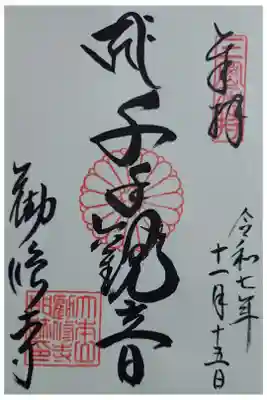 奉拝
令和七年
十一月十五日
千手観音
勧修寺